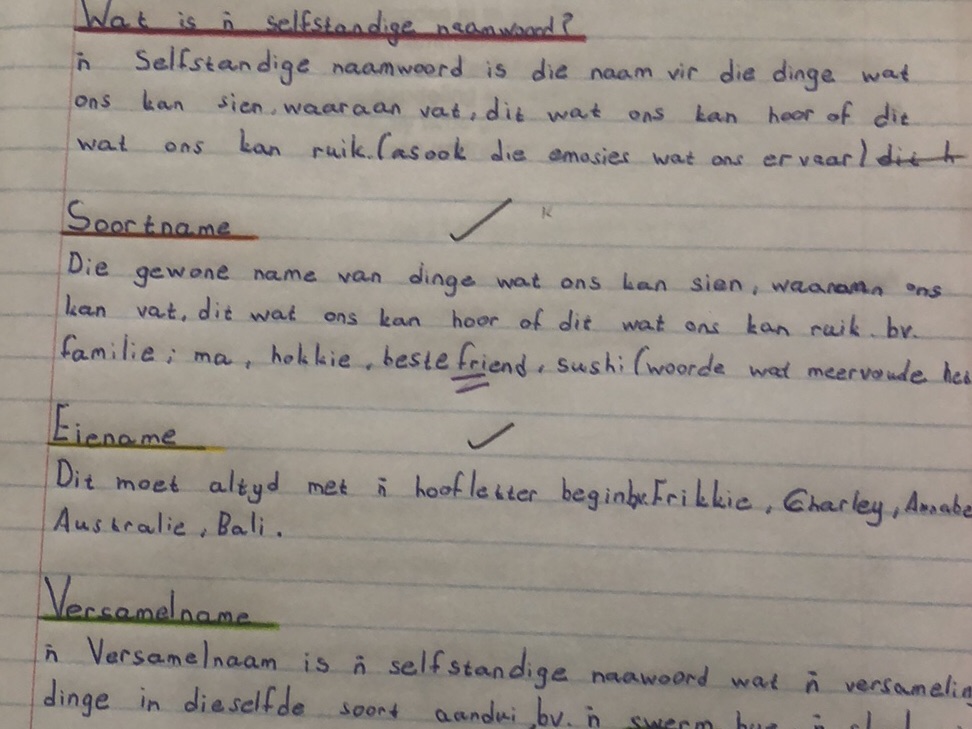 Wat is ñ selfstandige naamwoord?
ñ Selfstandige naamwoord is die naam vir die dinge wat
ons kan sien, waaraan vat, dit wat ons kan hoor of dit
wat ons kan ruik. (asook die emosies wat ons ervaar)
Soortname
Die gewone name van dinge wat ons kan sien, waaraan ons
kan vat, dit wat ons kan hoor of dit wat ons kan ruik. bv.
familie; ma, hokkie, beste friend, sushi (woorde wat meervoude
Eiename
Dit moet altyd met ñ hoofletter begin bv. Frikkie, Charley,
Australie, Bali.
Versamelname
ñ Versamelnaam is ñ selfstandige naawoord wat ñ
dinge in dieselfde soort aandui, bv. ñ swerm